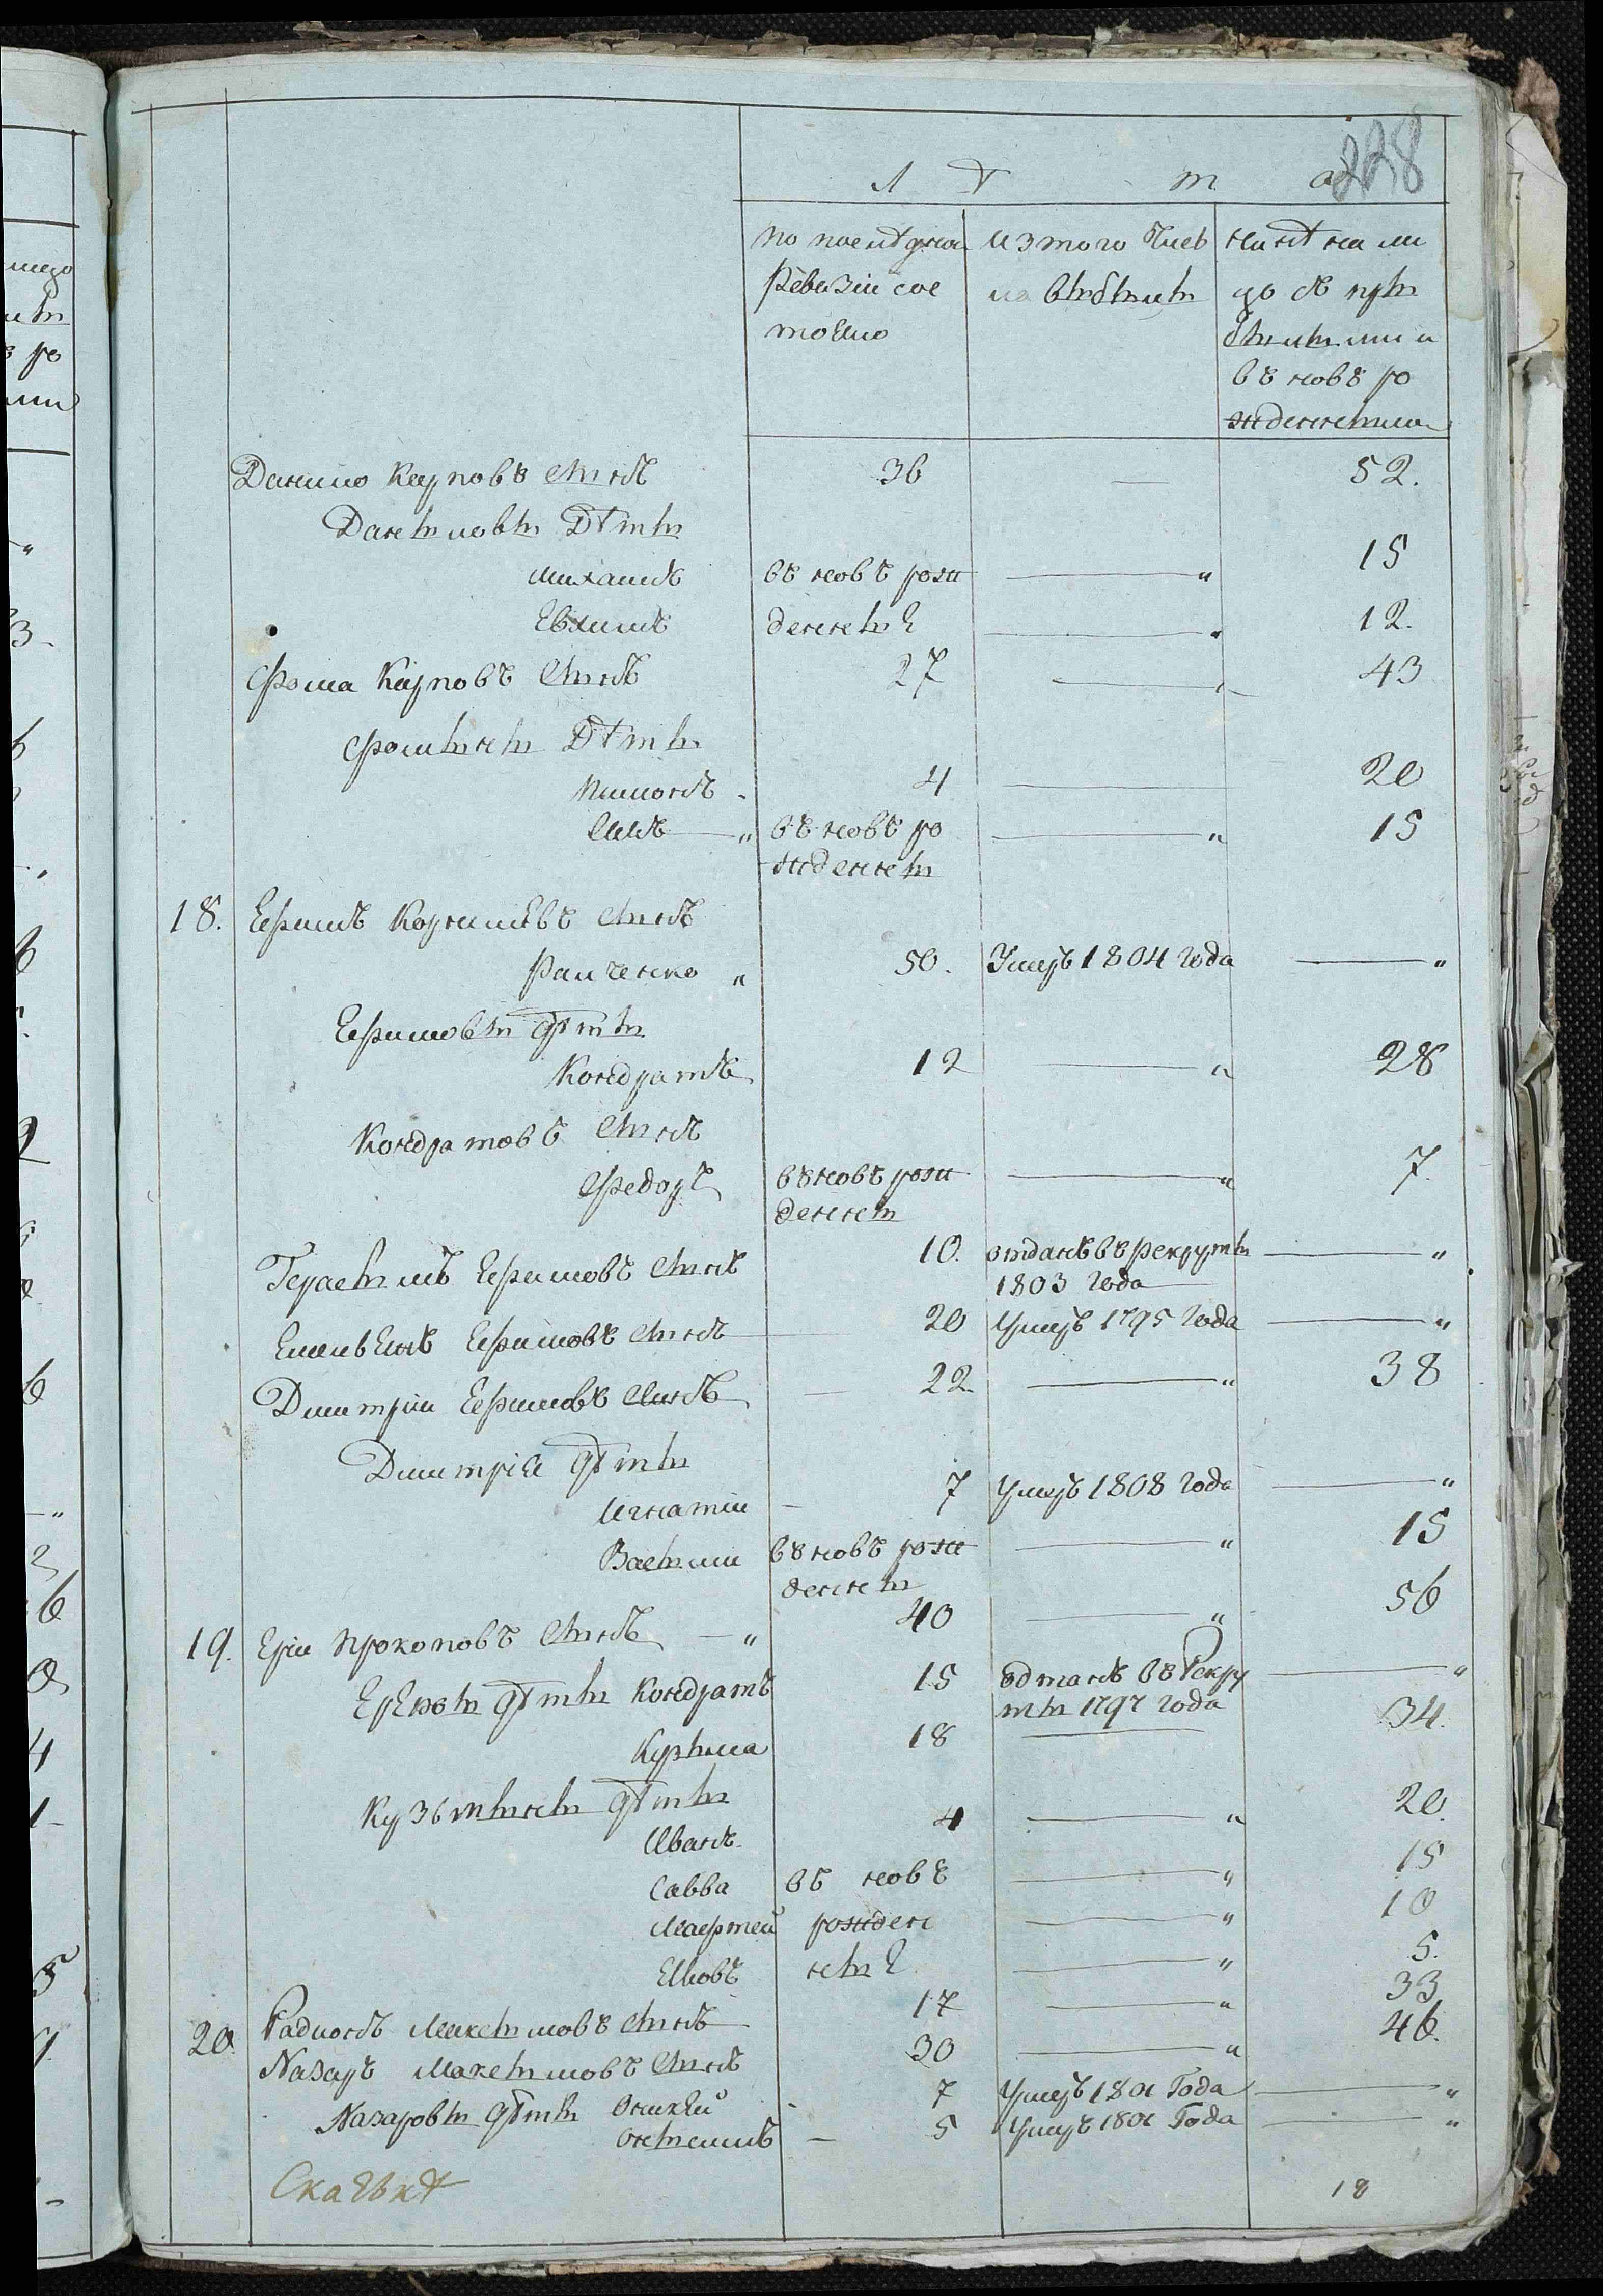 228
Л Ѣ т а
по последней
ревизіи сос
тояло
изтого числ
ла выбыли
нынѣ на ли
цо съ при
былыми и
въ новъ ро
жденными
Данило Карповъ сынъ 36 — 52.
Даниловы Дѣти
Михаилъ въ новѣ рож — " 15
Евхимъ денные — " 12.
Фома Карповъ сынъ 27 — 43
Фомины Дѣти
Пимонъ 4 — 20
Иякъ — " въ новѣ ро — " 15
жденны
18. Ефимъ Корнилѣвъ сынъ
Рамченко " 50. Умеръ 1804 года — "
Ефимовы дѣти
Кондратъ 12 — " 28
Кондратовъ сынъ
Федоръ въ новѣ рож — " 7.
денны
Герасимъ Ефимовъ сынъ 10. отданъ въ рекруты — "
1803 года
Емельянъ Ефимовъ сынъ 20 Умеръ 1795 года — "
Дмитрій Ефимовъ сынъ — 22. — " 38
Дмитрія дѣти
Игнатіи — 7 Умеръ 1808 года — "
Василіи въ новѣ рож — " 15
денны
19. Ерій Прокоповъ сынъ — " 40 — " 56
дѣти Кондратъ 15 одтанъ въ Рекру — "
ты 1797 года
Кузьма 18 — 34.
Кузьмины дѣти
Иванъ 4 — " 20.
Савва въ новѣ — " 15
рожден — " 10
Яковъ ные — " 5.
20. Радионъ Максимовъ сынъ 17 — " 33
Назаръ Максимовъ сынъ 30 — " 46.
Назаровы дѣти Оникѣй 7 Умеръ 1801 Года — "
— 5 Умеръ 1801 Года — "
18